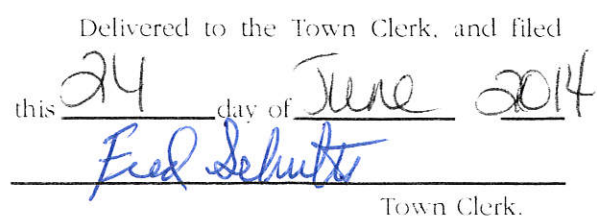 Delivered to the Town Clerk, and filed
this 24 day of June 2014
Fred Schultz
Town Clerk.